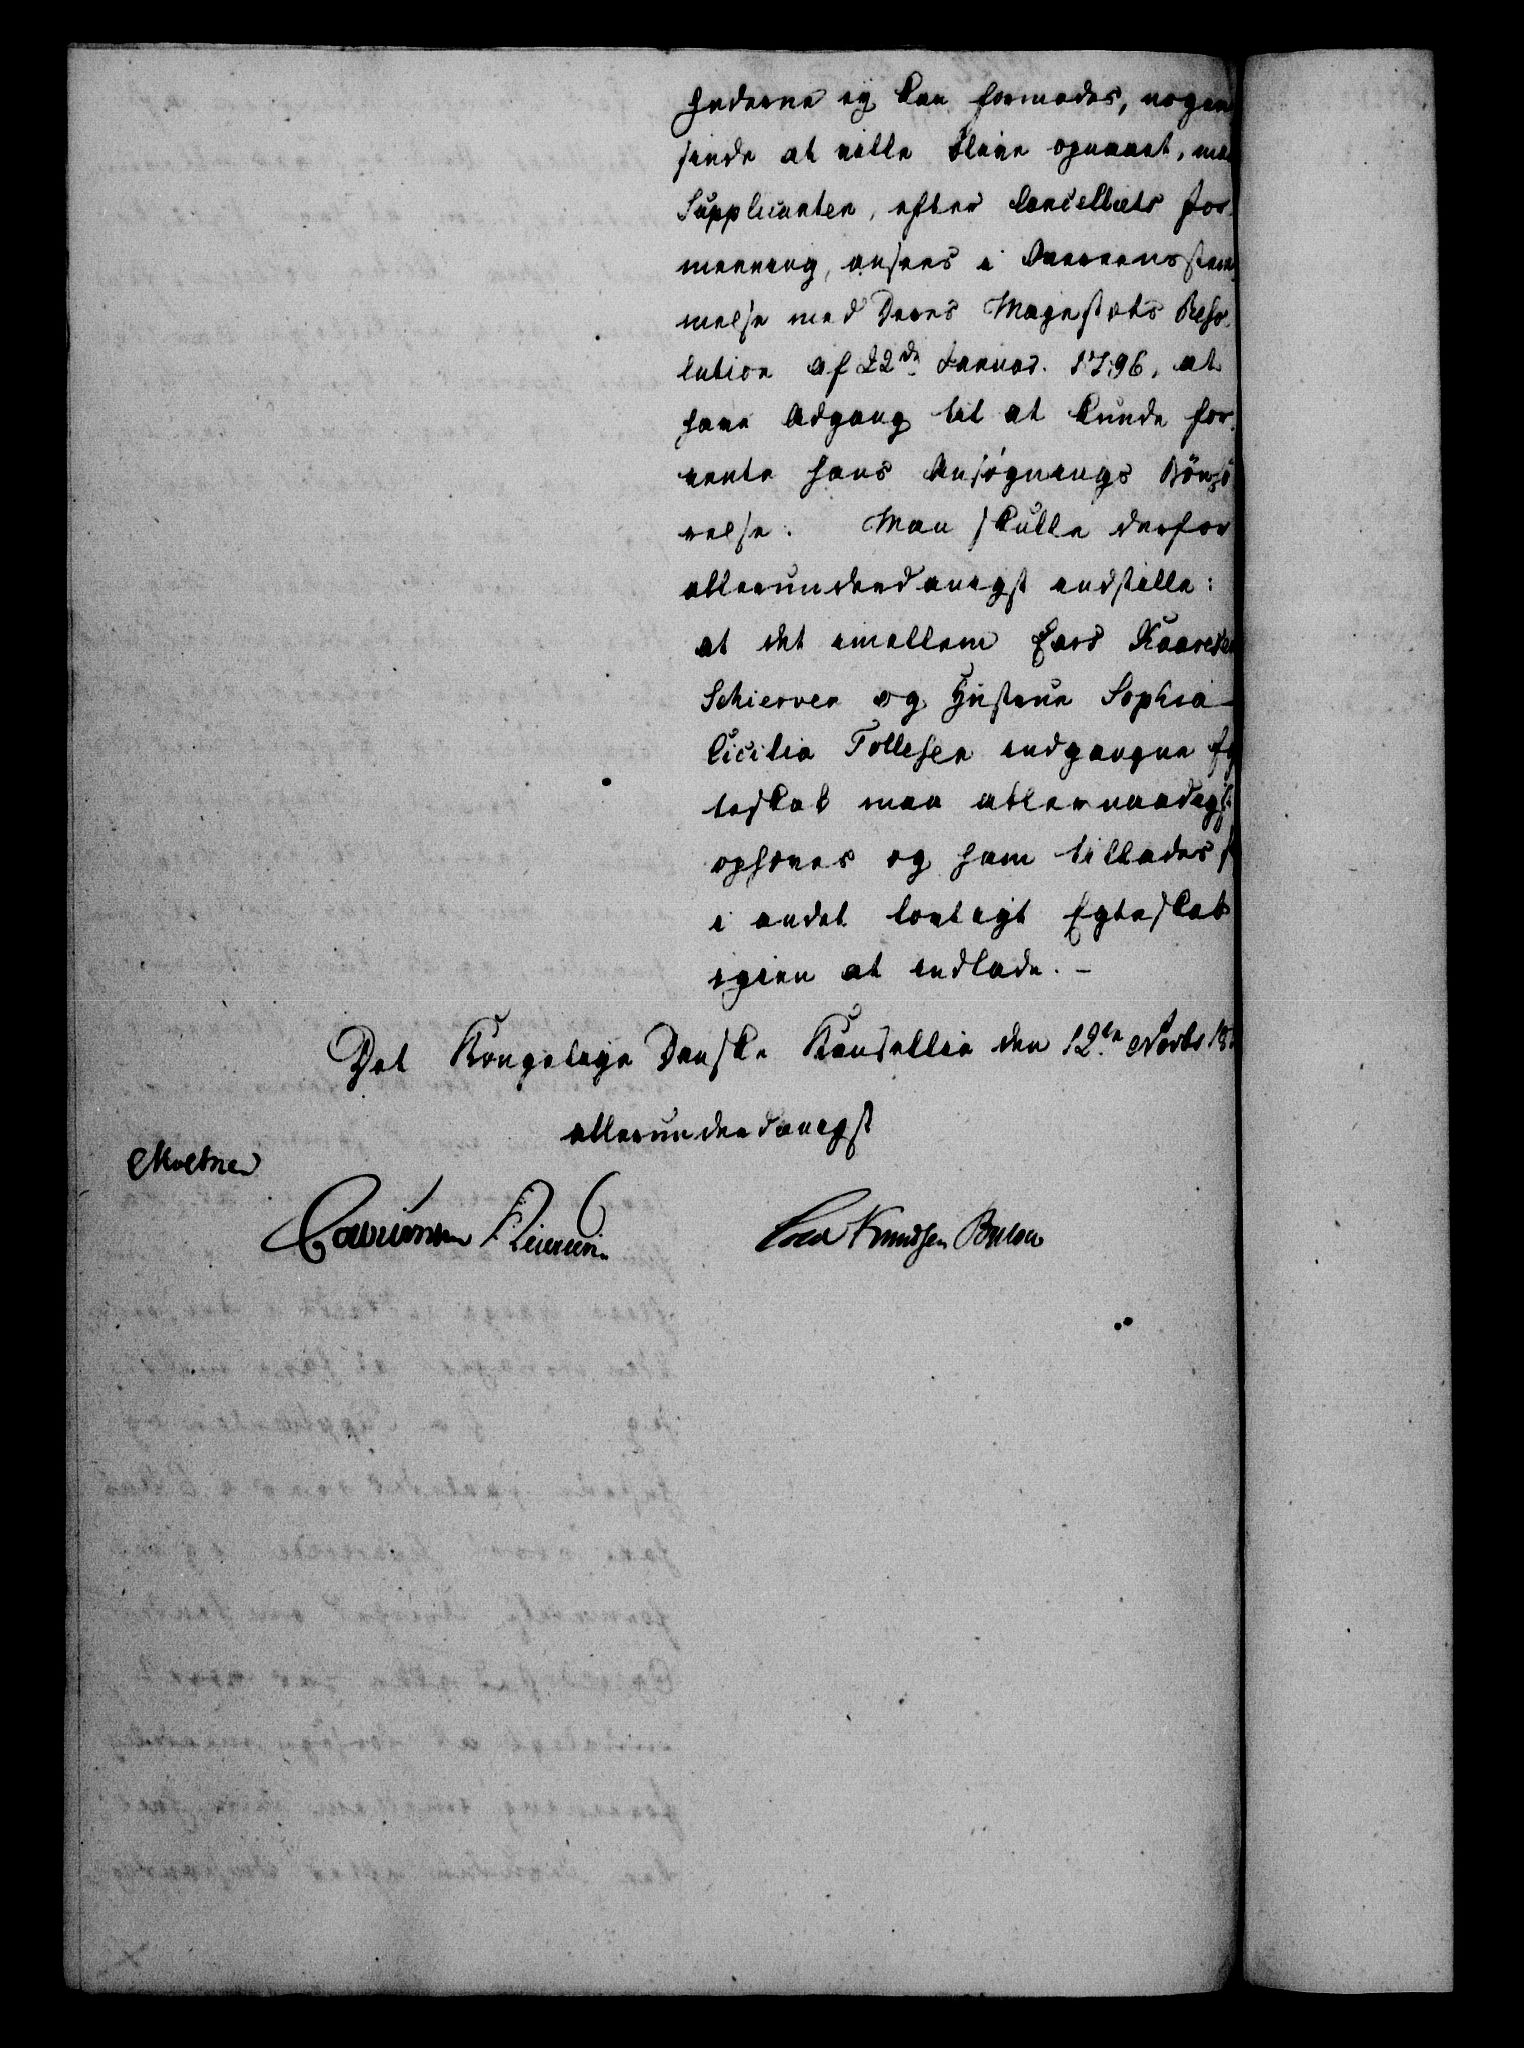 hederne ey kan formodes, nogen
sinde at ville blive opnaaet, maa
Supplicanten, efter Cancelliets For-
meening, ansees i Overeensstem-
melse med Deres Majestæts Reso-
lution af 22de Januar. 1796, at
have Adgang til at kunde for-
vente hans Ansøgnings Bönhö
relse. Man skulle derfor
allerunderdanigst indstille:
at det imellem Lars
Schierven og Hustrue Sophia
Cicilia Tollefsen indgangne Eg
teskab maa allernaadigst
ophæves og ham tillades
i andet lovligt Egteskab
igien at indlade. -
Det Kongelige Danske Kansellie den 12te Marts 18
allerunderdanigst
Moltke
Knudsen Bülow